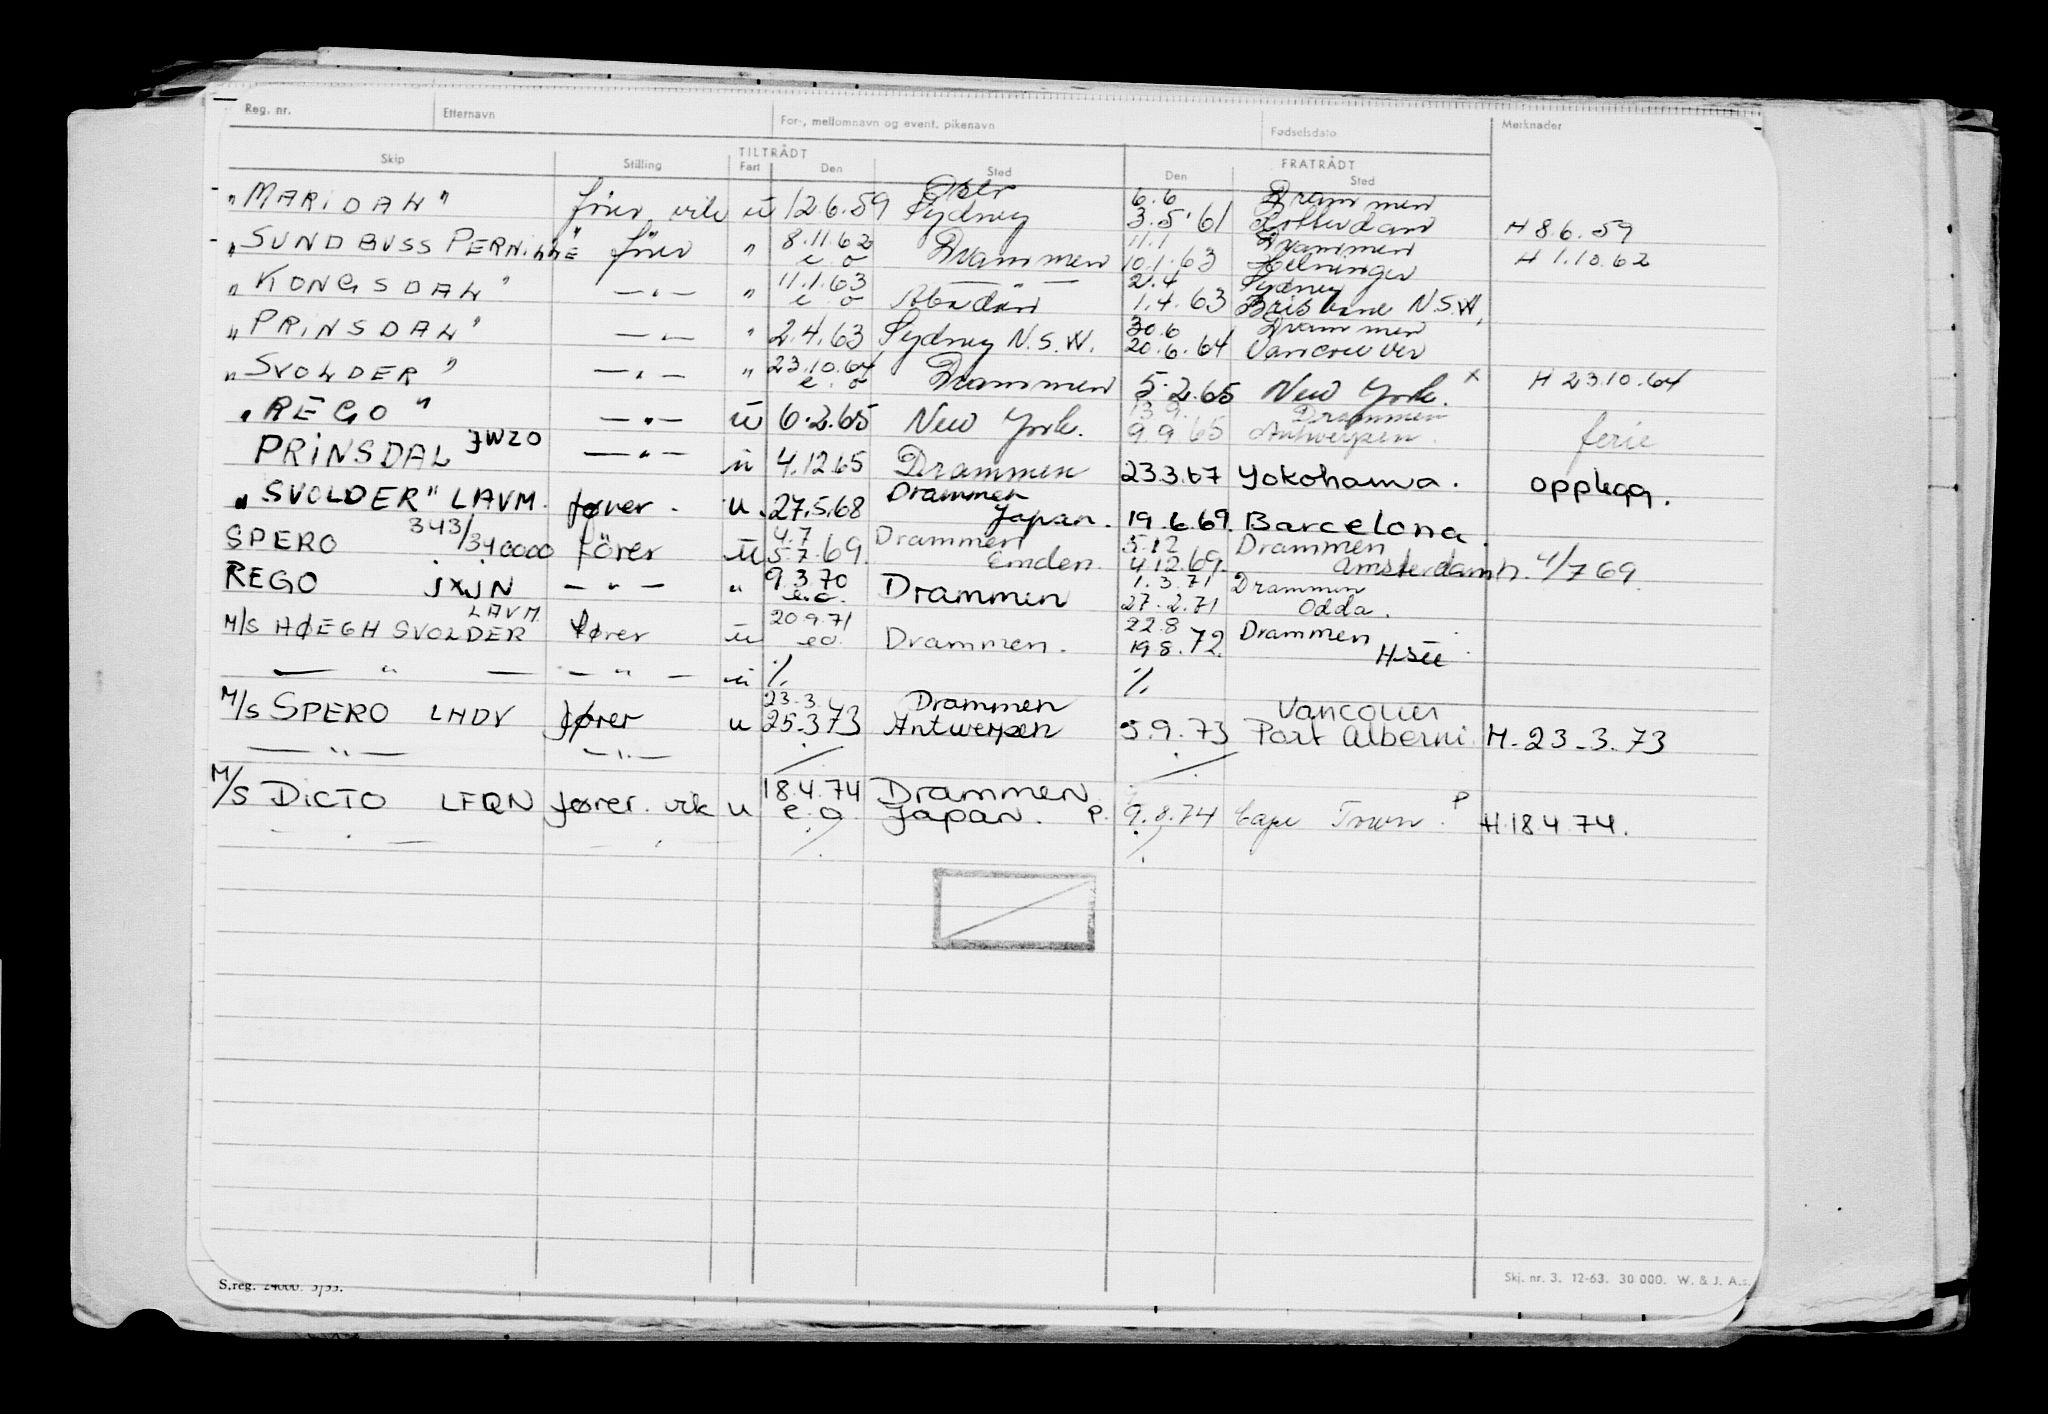 Reg. nr. Etternavn For-, mellomnavn og event. pikenavn Fødselsdato Merknader
TILTRÅDT FRATRÅDT
Skip Stilling Fart Den Sted Den Sted
Oslo 6.6 Drammen
"MARIDAL" förer vik u 12.6.59 Sydney 3.5.61 Rotterdam H 8.6.59
8.11.62 11.1 Drammen
"SUNDBUSS PERNILLE" förer " e o Drammen 10.1.63 Helsingør H 1.10.62
11.1.63 — " — 21.4 Sydney
"KONGSDAL" — " — " e o Abadan 1.4.63 Brisbane N.S.W.
30.6 Drammen
"PRINSDAL" — " — " 2.4.63 Sydney N.S.W. 20.6.64 Vancouver
23.10.64
"SVOLDER" — " — " e o Drammen 5.2.65 New York. x H 23.10.64
13.9. Drammen
"REGO" — " — u 6.2.65 New York. 9.9.65 Antwerpen. ferie
PRINSDAL JWZO — " — u 4.12.65 Drammen 23.3.67 Yokohama. opplegg.
Drammen
"SVOLDER" LAVM. fører. u. 27.5.68 Japan. 19.6.69. Barcelona.
343/ 4.7 Drammen 5.12 Drammen
SPERO 340000 förer u 5.7.69. Emden. 4.12.69. Amsterdam h. 4/7 69.
9.3.70 1.3.71 Drammen
REGO jxjN — " — " e.o. Drammen 27.2.71 Odda.
LAVM. 20.9.71 22.8 Drammen
M/S HØEGH SVOLDER fører u eo. Drammen. 19.8.72. H-See
— " — — " — u ⁒ ⁒
23.3. Drammen Vancouver
M/S SPERO LHDV fører u 25.3.73 Antwerpen 5.9.73 Port Alberni H-23-3.73
— " — — " — ⁒ ⁒
18.4.74 Drammen
M/S DICTO LFQN fører. vik u e.o. Japan. P. 9.8.74 Cape Town. P H.18.4.74.
— " — — " — ⁒ ⁒
S.reg. Skj. nr. 3. 12-63. 30 000. W. & J. A.s.